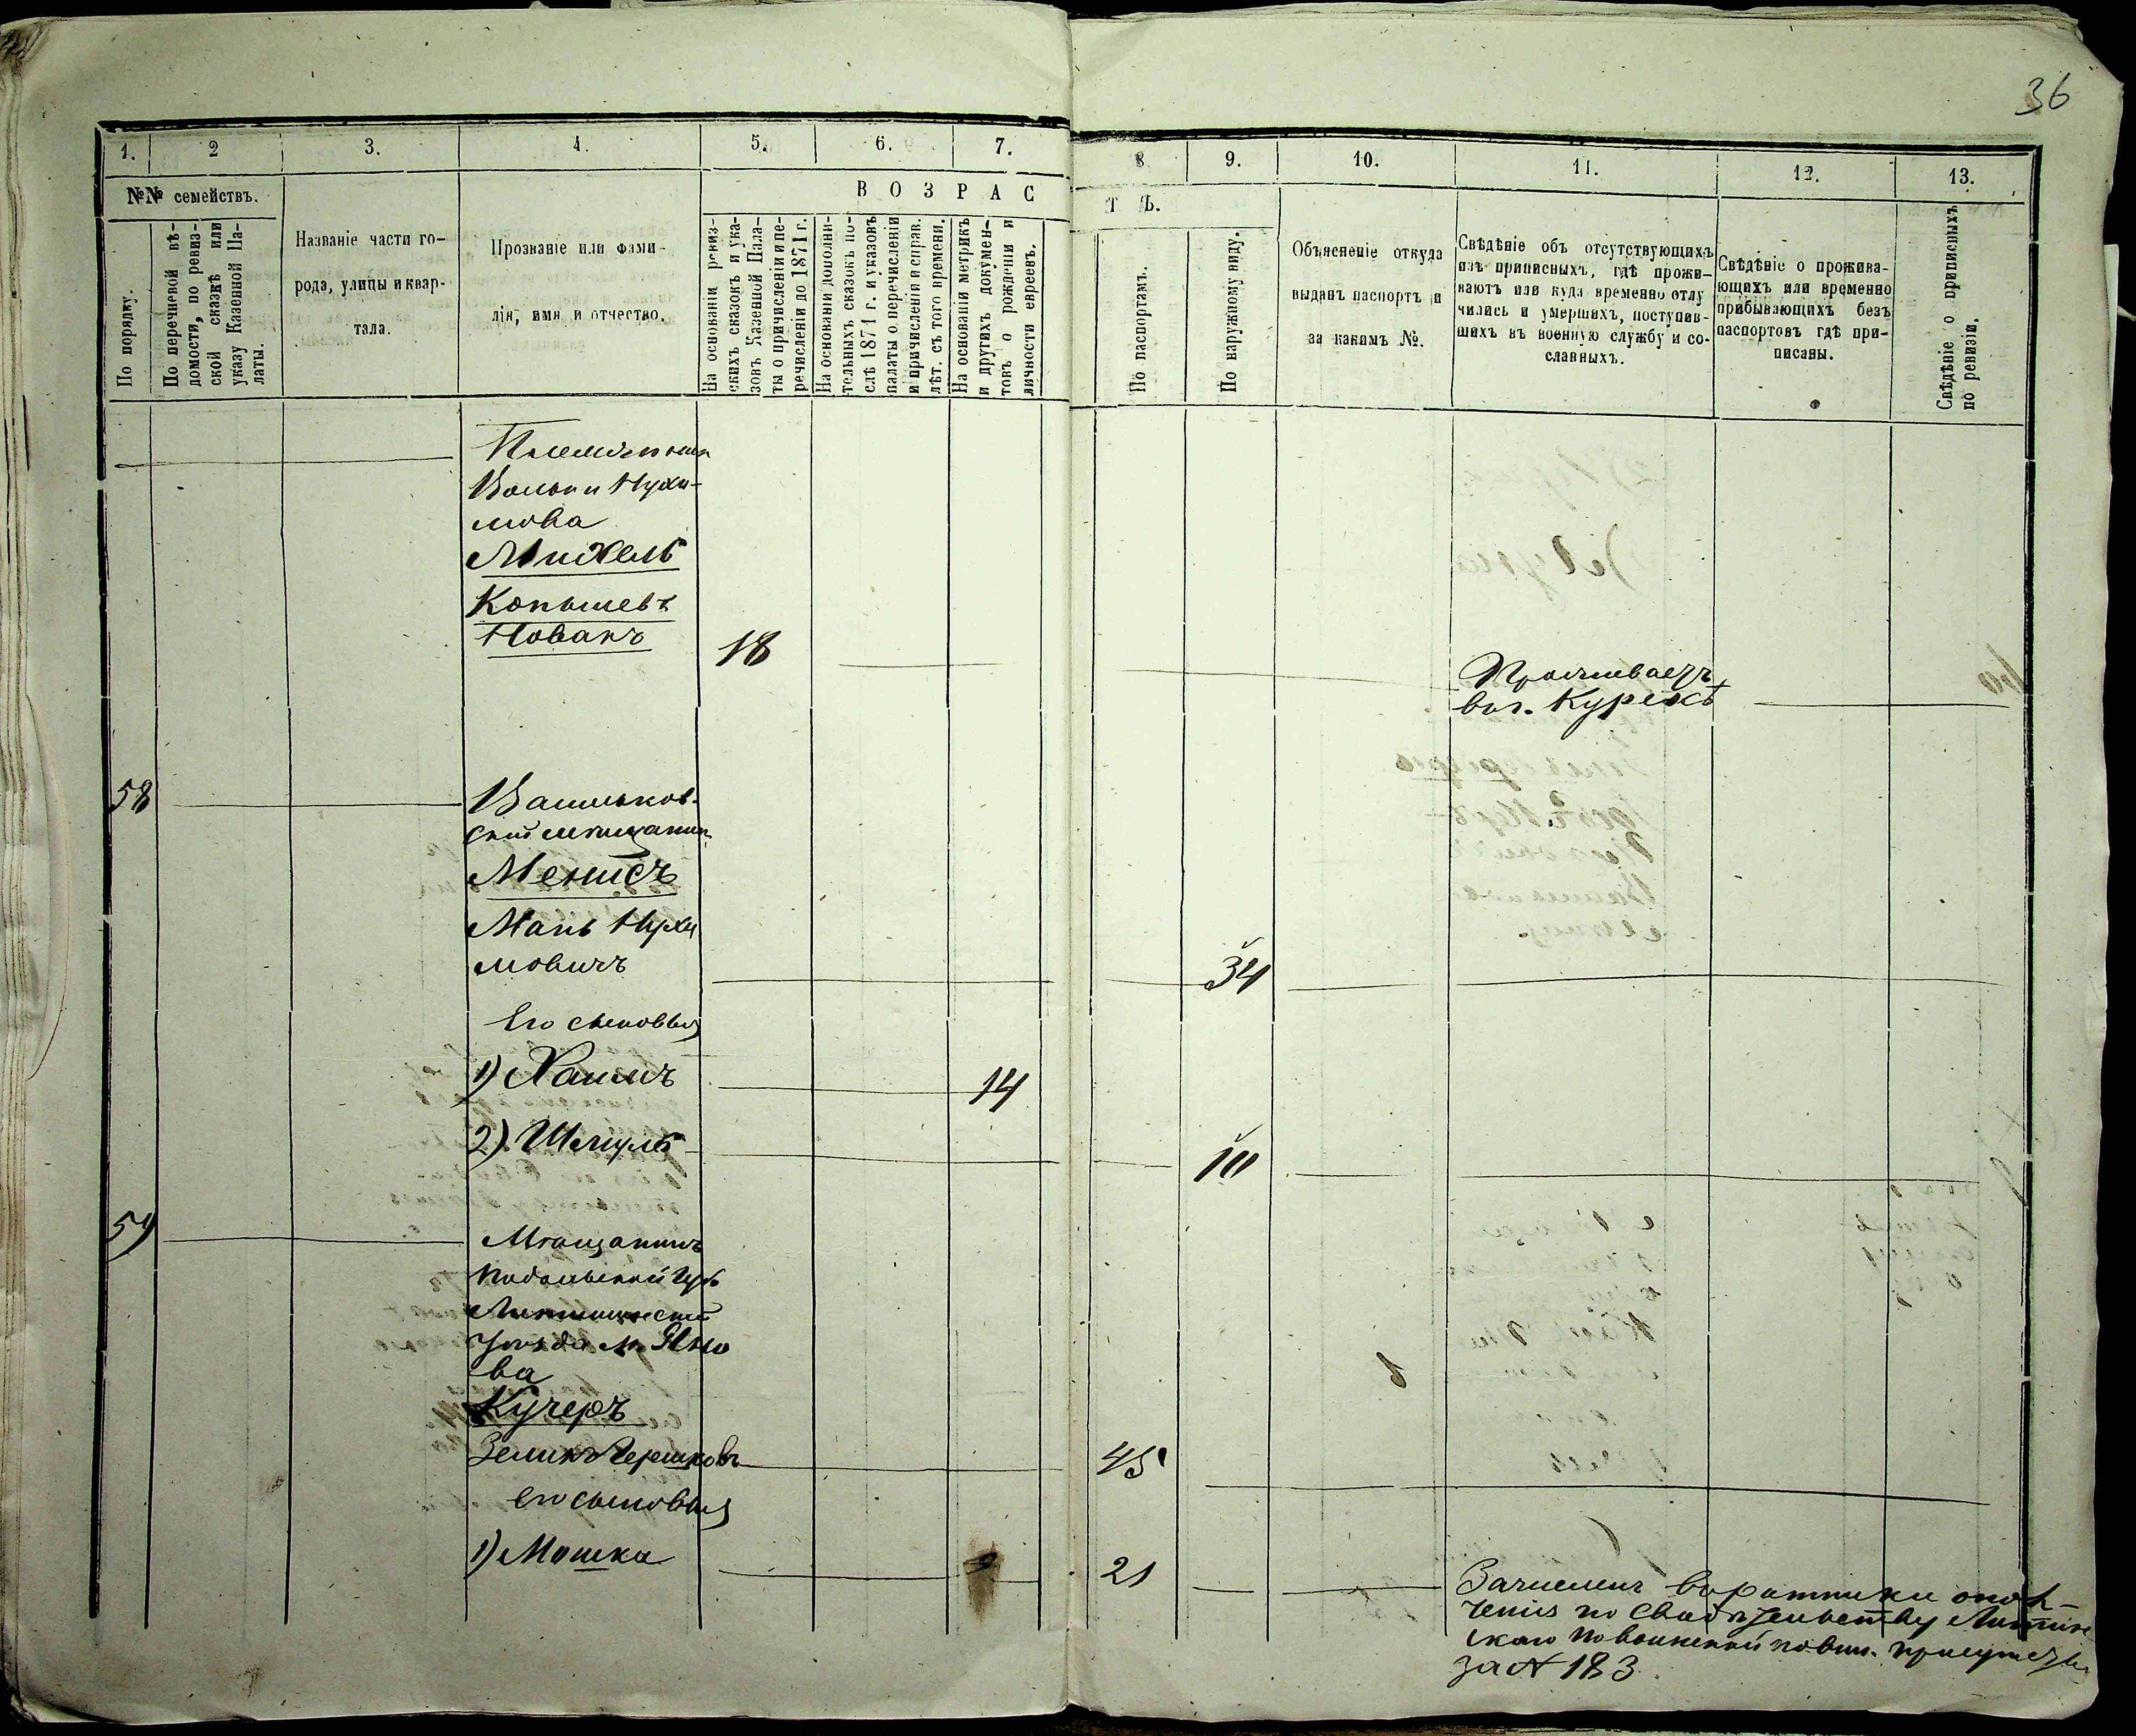 36
1. 2 3. 4. 5. 6. 7. 8 9. 10. 11. 12. 13.
№№ семействъ.
По порядку.
По перечневой вѣ-
домости, по ревиз-
ской сказкѣ или
указу Казенной Па-
латы.
Названіе части го-
рода, улицы и квар-
тала.
Прозваніе или фами-
лія, имя и отчество.
ВОЗРАСТЪ.
На основаніи ревиз-
скихъ сказокъ и ука-
зовъ Казенной Пала-
ты о причисленіи и пе-
речисленіи до 1871 г.
На основаніи дополни-
тельныхъ сказокъ по-
слѣ 1871 г. и указовъ
палаты о перечисленіи
и причисленіи и справ.
лѣт. съ того времени.
На основаніи метрикъ
и другихъ докумен-
товъ о рожденіи и
личности евреевъ.
По паспортамъ.
По наружному виду.
Объясненіе откуда
выданъ паспортъ и
за какимъ №.
Свѣдѣніе объ отсутствующихъ
изъ приписныхъ, гдѣ прожи-
ваютъ или куда временно отлу
чились и умершихъ, поступив-
шихъ въ военную службу и со-
сланныхъ.
Свѣдѣніе о прожива-
ющихъ или временно
прибывающихъ безъ
паспортовъ гдѣ при-
писаны.
Свѣдѣніе о приписныхъ
по ревизіи.
Племянник
Вольки Нухи-
мова
Михель
Копышевъ
Новакъ 18
Проживаетъ
въ г. Курскѣ
58 Васильков-
ский мѣщанин
Менисъ
Мань Нухи
мовичъ 34
Его сыновья
1) Хаимъ 14
2) Шмуль 10
59 Мѣщанинъ
Подольской губ
Литинскаго
уѣзда м. Яно
ва
Кучеръ
Зеликъ Гершковъ 45
Его сыновья
1) Мошка 21
Зачисленъ в ратники опол-
ченія по свидѣтельству Литин
скаго по воинской повин. присутствія
за № 183.